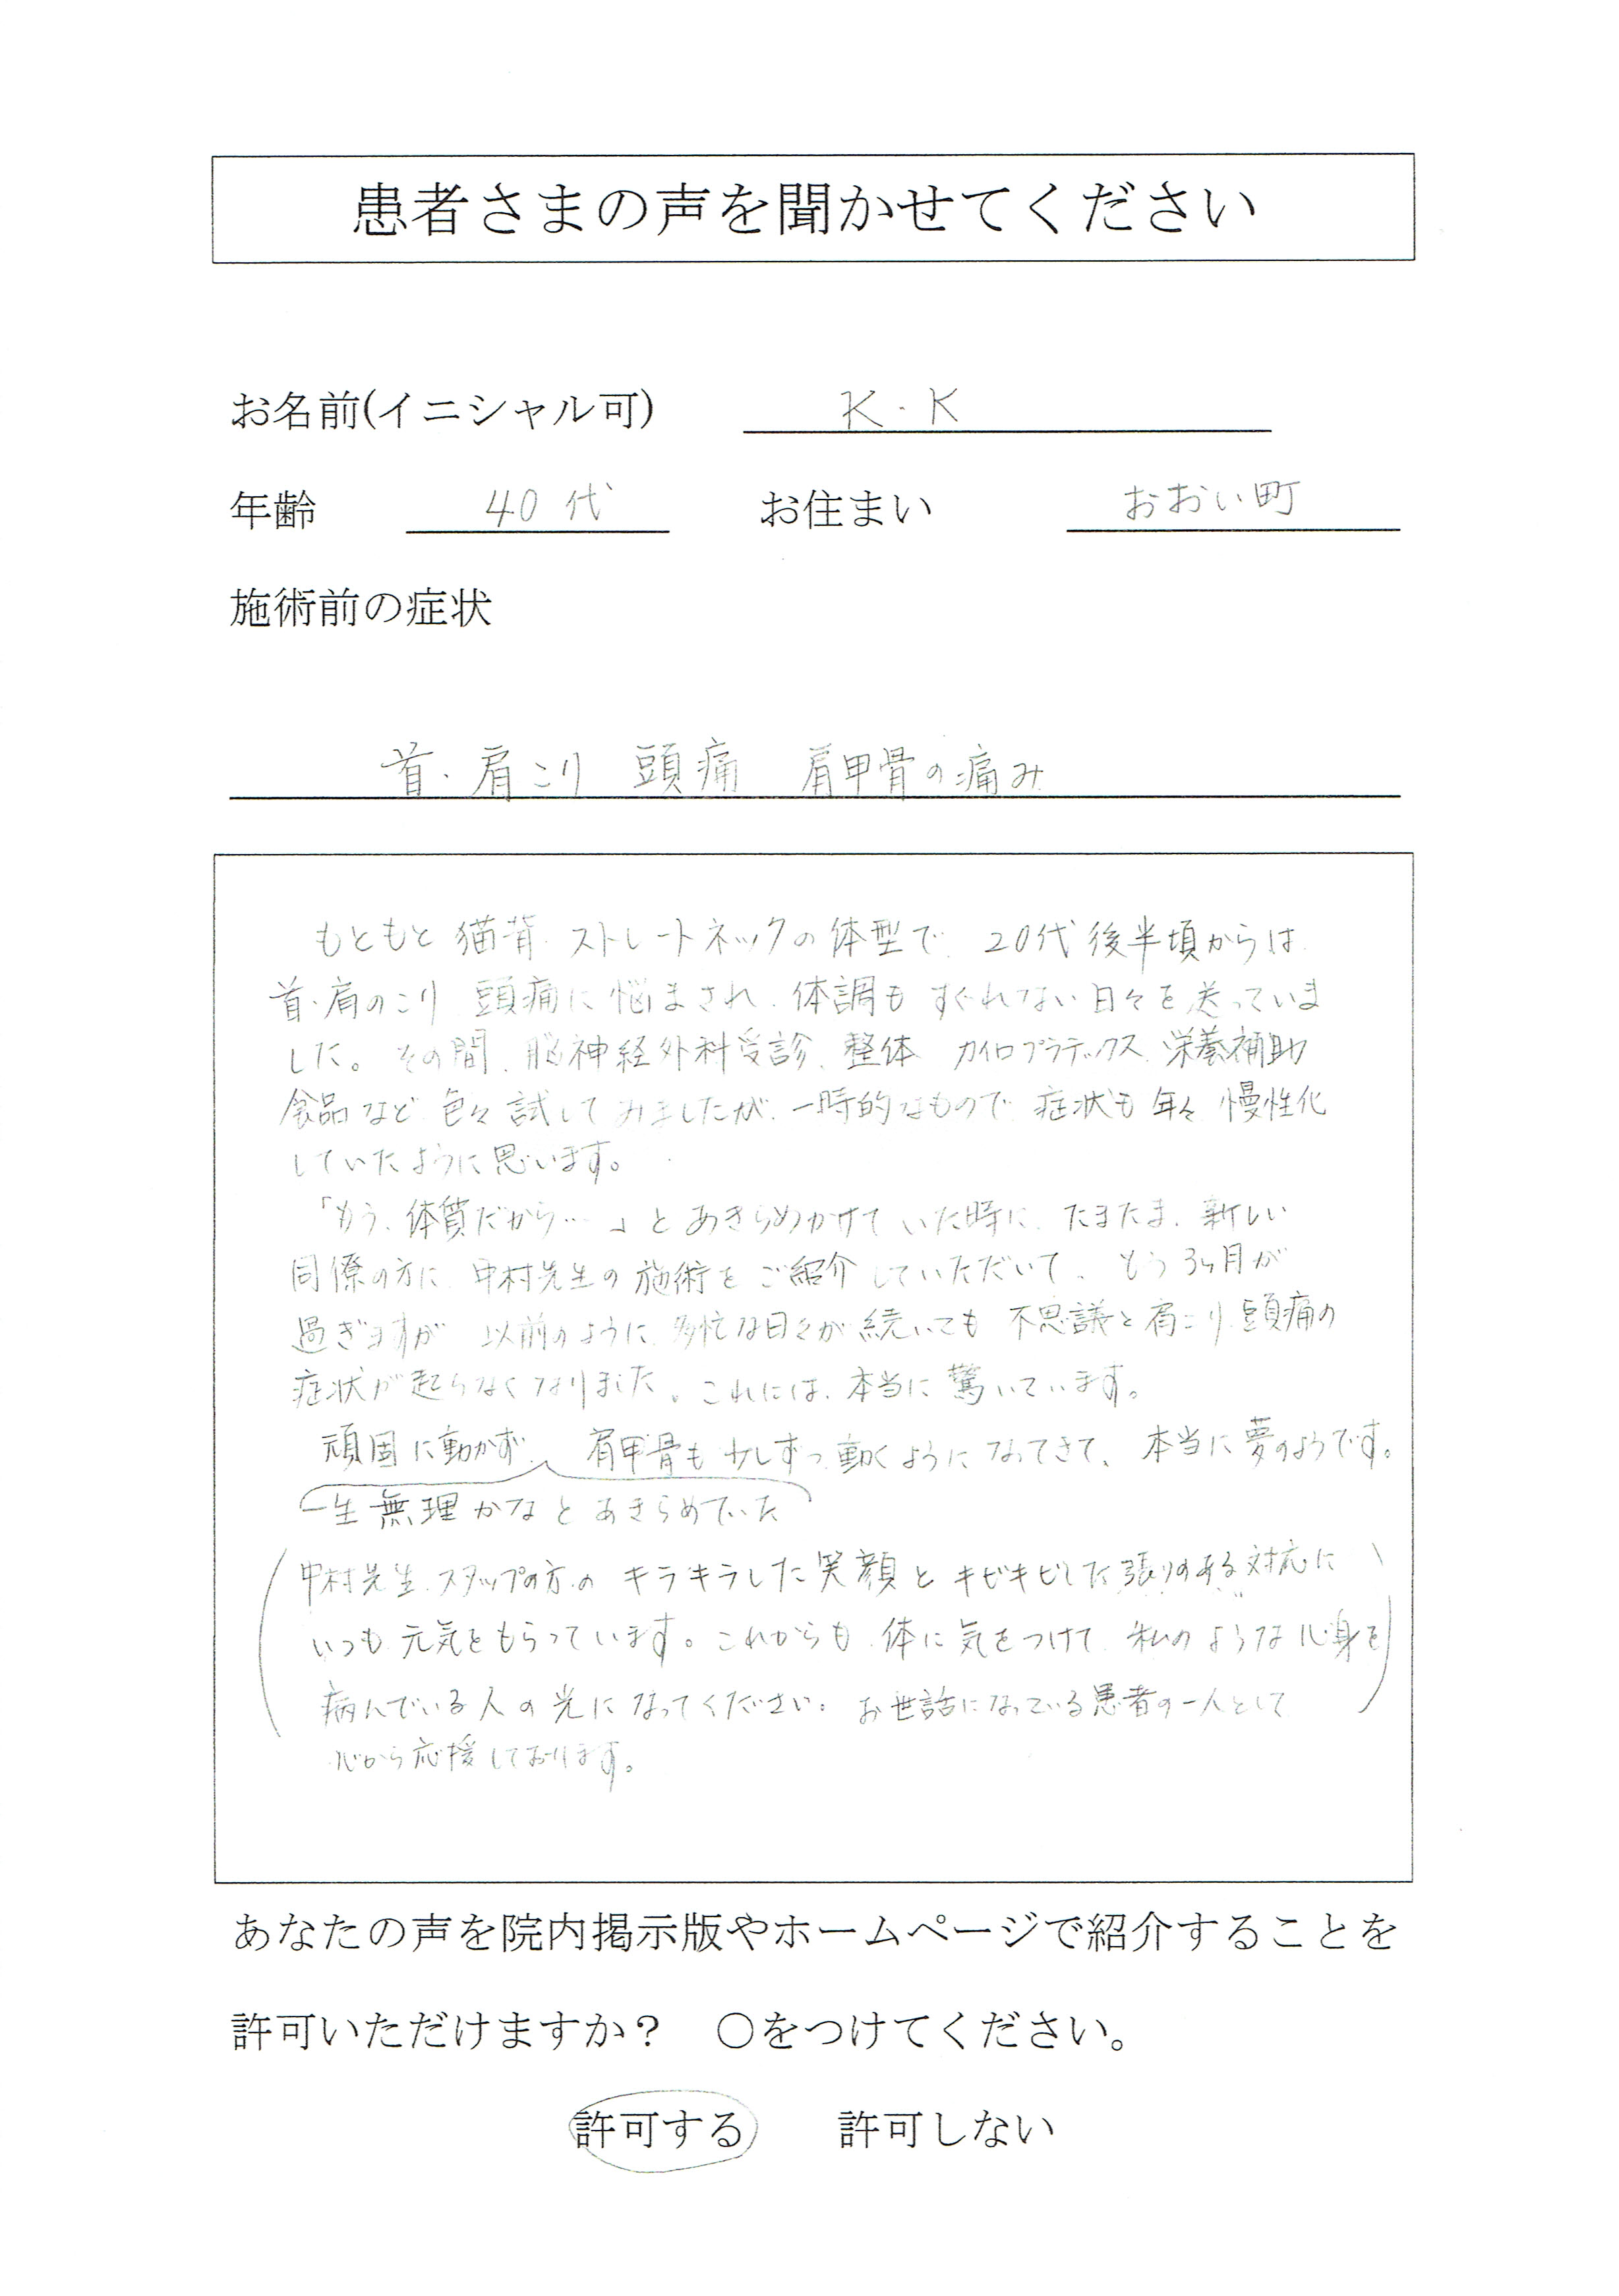 患者さまの声を聞かせてください
お名前(イニシャル可) K・K
年齢 40代 お住まい おおい町
施術前の症状
首・肩こり 頭痛 肩甲骨の痛み
もともと猫背、ストレートネックの体型で、20代後半頃からは
首・肩のこり、頭痛に悩まされ、体調もすぐれない日々を送っていま
した。その間、脳神経外科受診、整体、カイロプラテックス、栄養補助
食品など、色々試してみましたが、一時的なもので、症状も年々、慢性化
していたように思います。
「もう、体質だから…」とあきらめかけていた時に、たまたま、新しい
同僚の方に、中村先生の施術をご紹介していただいて、もう3ヶ月が
過ぎますが、以前のように、多忙な日々が続いても、不思議と肩こり、頭痛の
症状が起らなくなりました。これには、本当に驚いています。
頑固に動かず、肩甲骨も少しずつ動くようになってきて、本当に夢のようです。
一生無理かなとあきらめていた
中村先生、スタップの方の キラキラした笑顔とキビキビした張りのある対応に
いつも元気をもらっています。これからも、体に気をつけて、私のような心身を
病んでいる人の光になってください。お世話になっている患者の一人として
心から応援しております。
あなたの声を院内掲示版やホームページで紹介することを
許可いただけますか? ○をつけてください。
許可する 許可しない